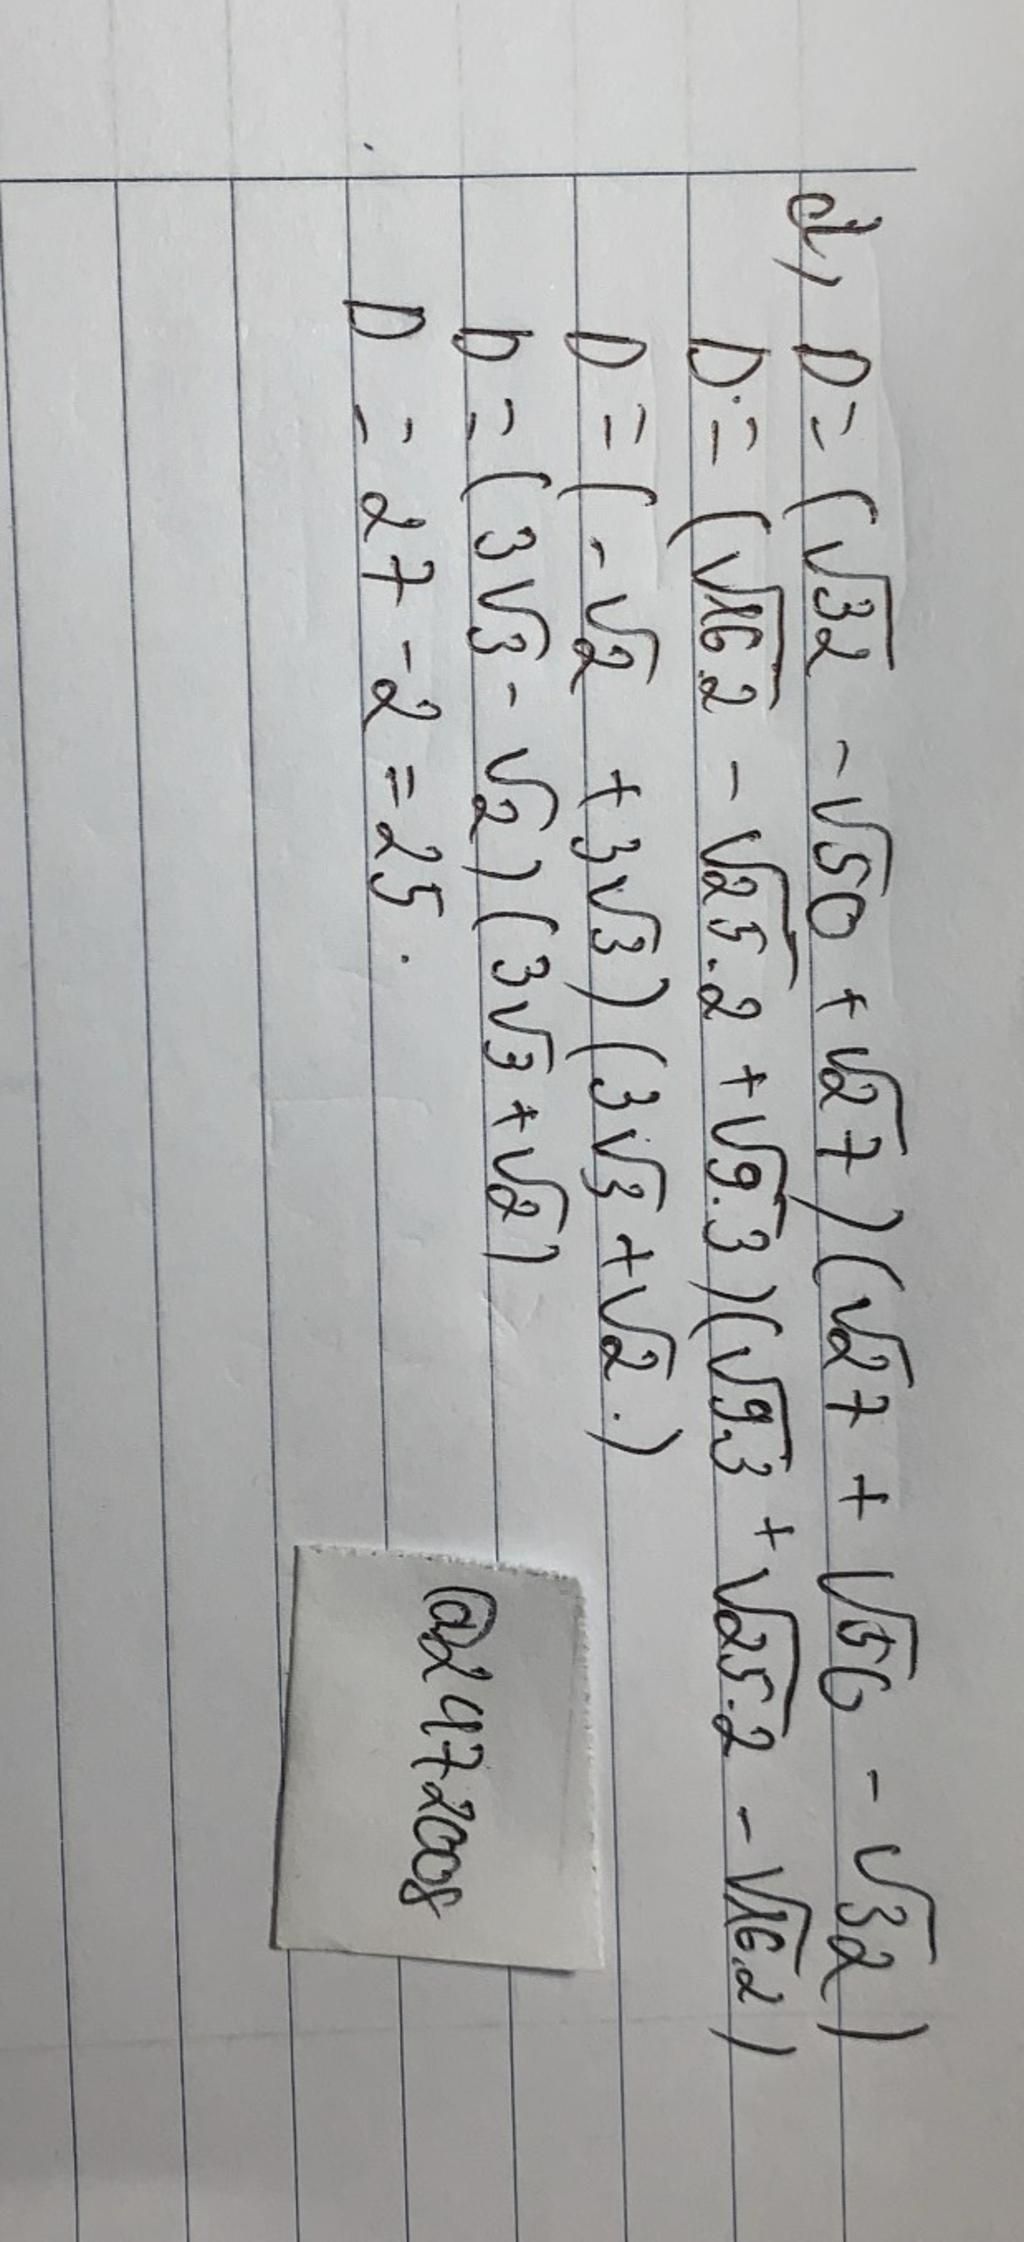 d, D = (√32 - √50 + √27)(√27 + √50 - √32)
D = (√16.2 - √25.2 + √9.3)(√9.3 + √25.2 - √16.2)
D = (-√2 + 3√3)(3√3 + √2.)
D = (3√3 - √2)(3√3 + √2)
D = 27 - 2 = 25.
@2472008